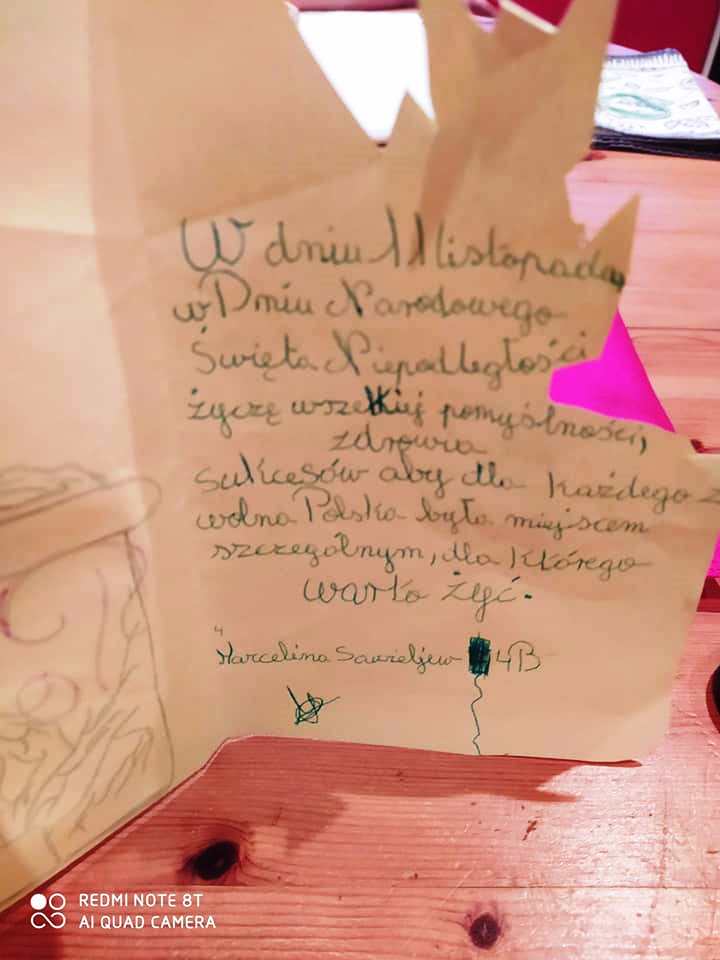 W dniu 11 listopada
w Dniu Narodowego
Święta Niepodległości
życzę wszelkiej pomyślności,
zdrowia
sukcesów aby dla każdego z
wolna Polska była miejscem
szczególnym, dla którego
warto żyć.
Marcelina Sawieljew 4B
REDMI NOTE 8T
AI QUAD CAMERA